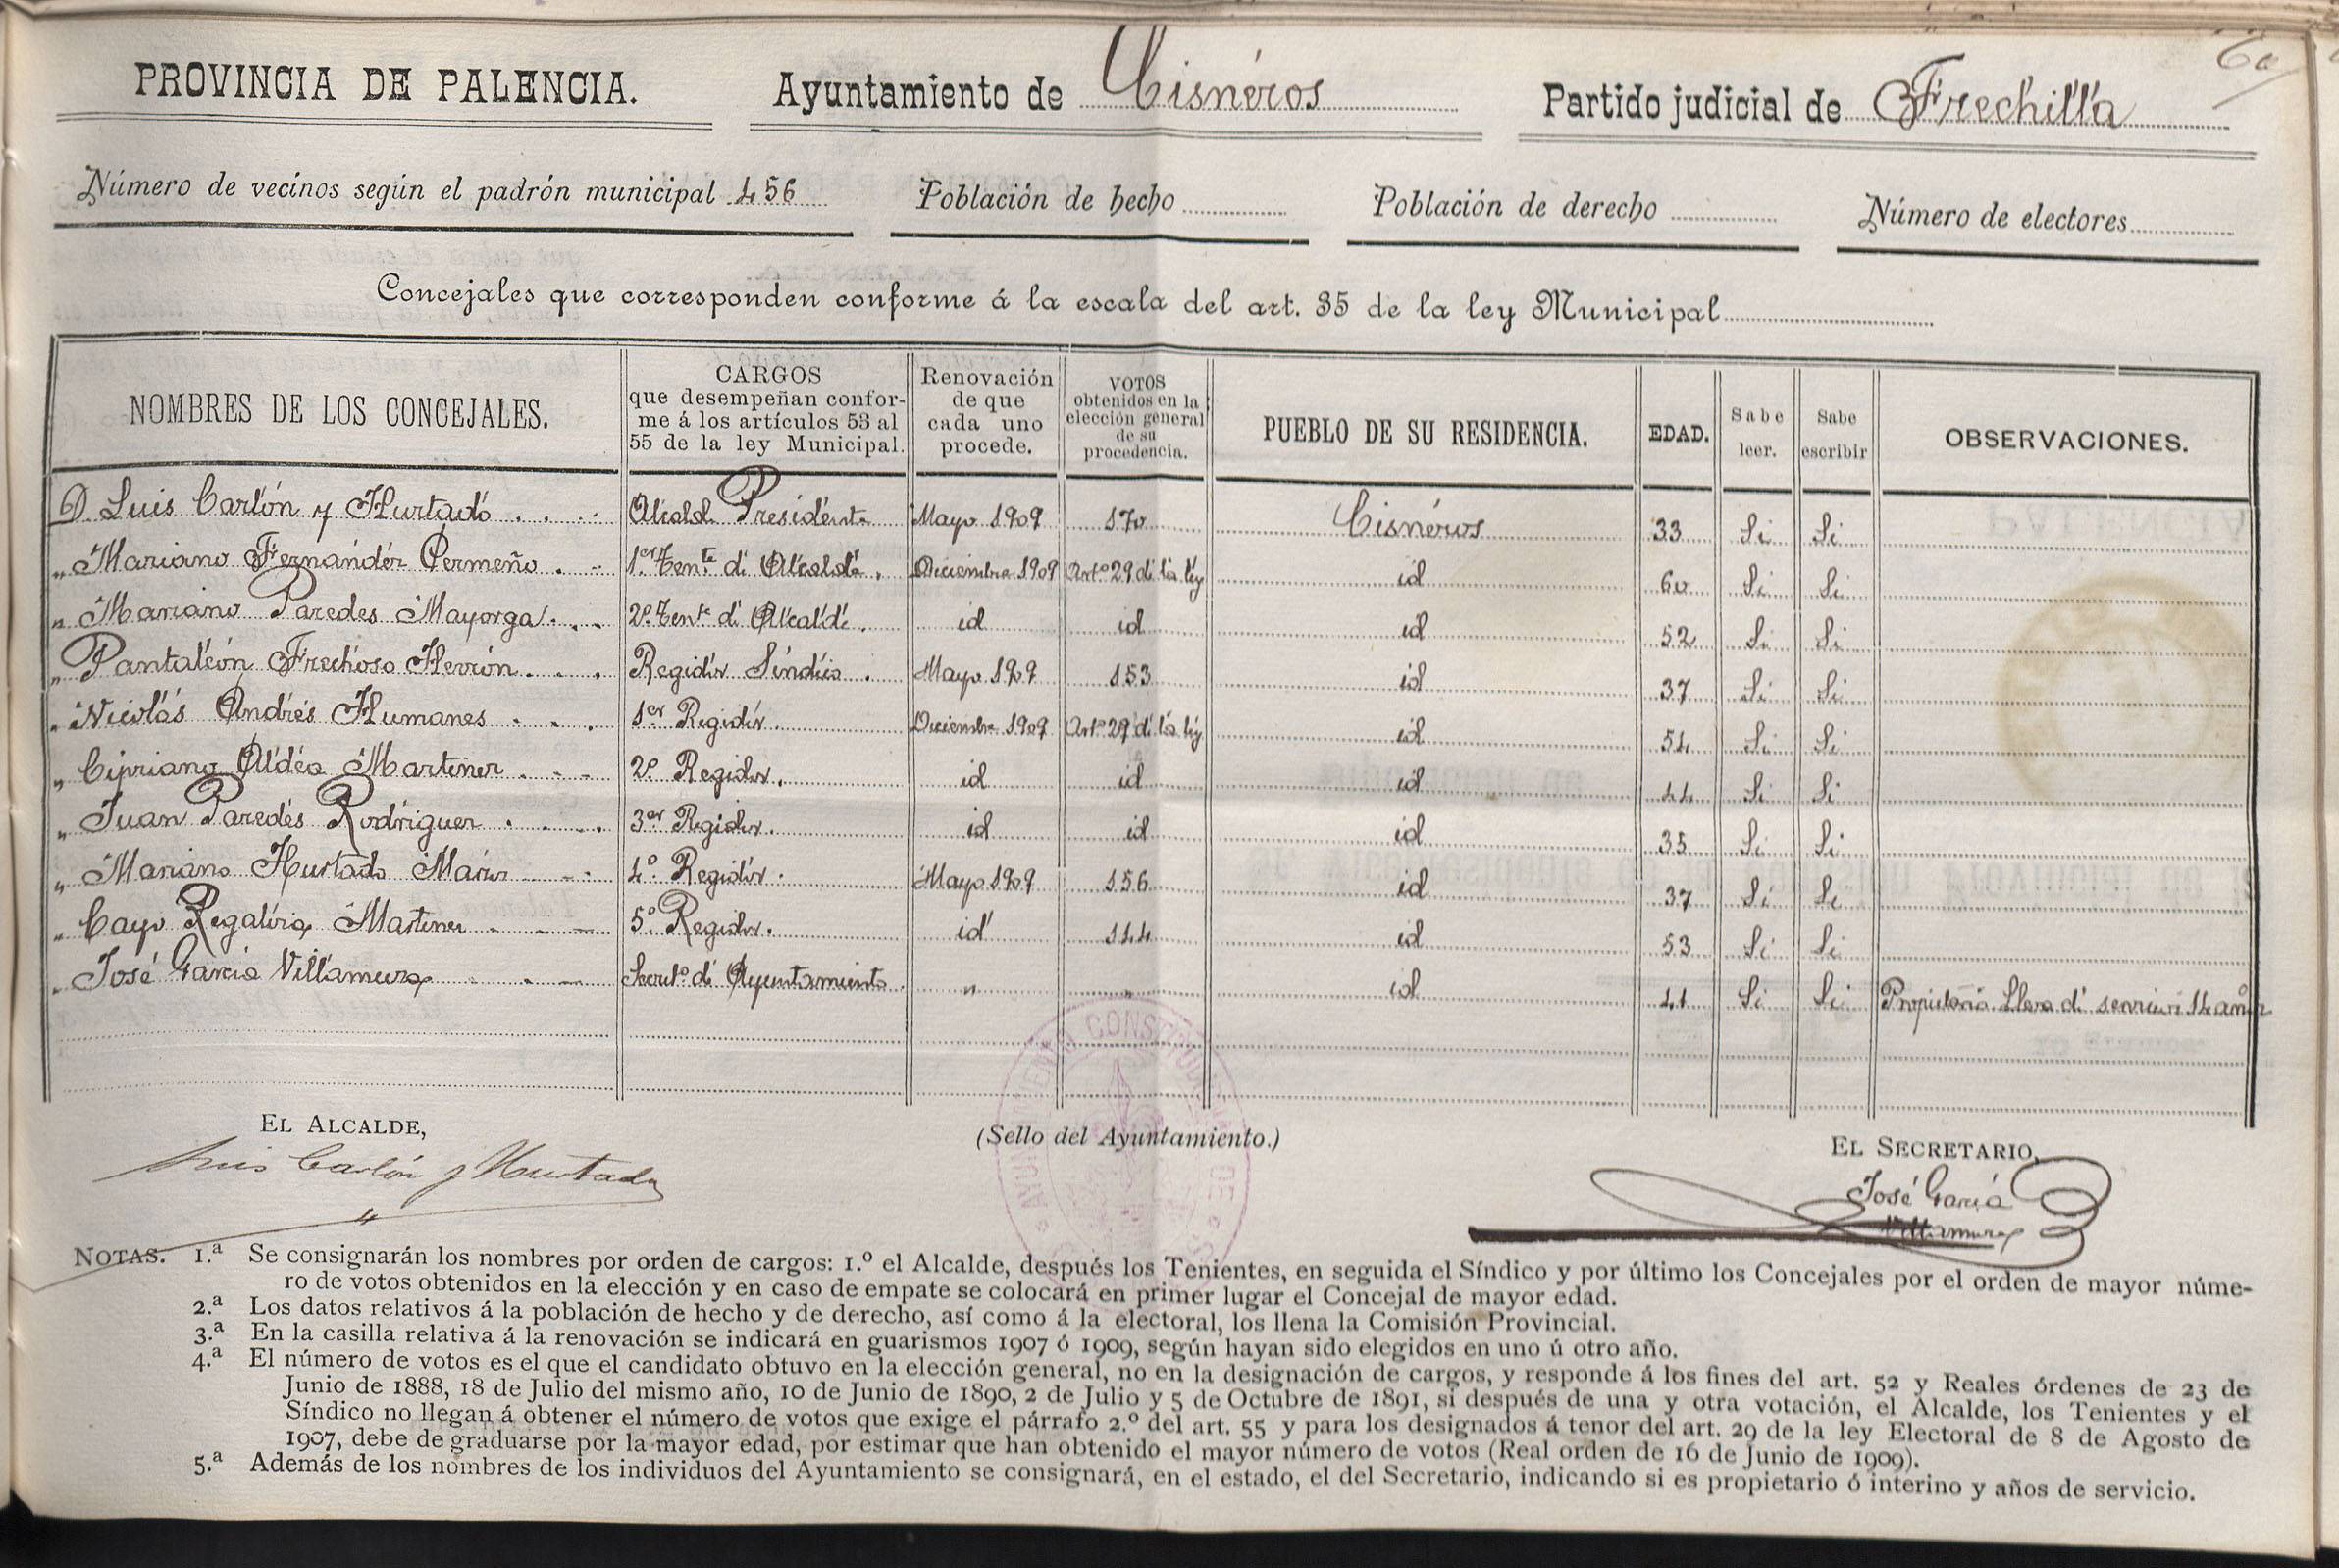 60
PROVINCIA DE PALENCIA. Ayuntamiento de Cisnéros Partido judicial de Frechilla
Número de vecinos según el padrón municipal 456 Población de hecho Población de derecho Número de electores
Concejales que corresponden conforme á la escala del art. 35 de la ley Municipal
NOMBRES DE LOS CONCEJALES.
CARGOS
que desempeñan confor-
me á los artículos 53 al
55 de la ley Municipal.
Renovación
de que
cada uno
procede.
VOTOS
obtenidos en la
elección general
de su
procedencia.
PUEBLO DE SU RESIDENCIA.
EDAD.
Sabe
leer.
Sabe
escribir
OBSERVACIONES.
D. Luis Carlón y Hurtado Alcald. Presidente Mayo 1909 170 Cisnéros 33 Si Si
" Mariano Fernández Permeño 1.er Ten.te de Alcalde. Diciembre 1909 Art.º 29 de la ley id 60 Si Si
" Mariano Paredes Mayorga 2.º Ten.te de Alcalde. id id id 52 Si Si
" Pantaleón Frechoso Herrón Regidor Síndico Mayo 1909 153 id 37 Si Si
" Nicolás Andrés Humanes 1.er Regidor. Diciembre 1909 Art.º 29 de la ley id 54 Si Si
" Cipriano Aldéa Martinez 2.º Regidor. id id id 44 Si Si
" Juan Paredes Rodriguez 3.er Regidor. id id id 35 Si Si
" Mariano Hurtado 4.º Regidor. Mayo 1909 156 id 37 Si Si
" Cayo Regaliza Martinez 5.º Regidor. id 144 id 53 Si Si
" José García Villamuza Secret.º de Ayuntamiento " " id 41 Si Si Propietario. Lleva de servicio 14 años
EL ALCALDE,
(Sello del Ayuntamiento.)
EL SECRETARIO,
Luis Carlón y Hurtado
José García
Villamuza
AYUNTAMIENTO CONSTITUCIONAL DE
NOTAS. 1.ª Se consignarán los nombres por orden de cargos: 1.º el Alcalde, después los Tenientes, en seguida el Síndico y por último los Concejales por el orden de mayor núme-
ro de votos obtenidos en la elección y en caso de empate se colocará en primer lugar el Concejal de mayor edad.
2.ª Los datos relativos á la población de hecho y de derecho, así como á la electoral, los llena la Comisión Provincial.
3.ª En la casilla relativa á la renovación se indicará en guarismos 1907 ó 1909, según hayan sido elegidos en uno ú otro año.
4.ª El número de votos es el que el candidato obtuvo en la elección general, no en la designación de cargos, y responde á los fines del art. 52 y Reales órdenes de 23 de
Junio de 1888, 18 de Julio del mismo año, 10 de Junio de 1890, 2 de Julio y 5 de Octubre de 1891, si después de una y otra votación, el Alcalde, los Tenientes y el
Síndico no llegan á obtener el número de votos que exige el párrafo 2.º del art. 55 y para los designados á tenor del art. 29 de la ley Electoral de 8 de Agosto de
1907, debe de graduarse por la mayor edad, por estimar que han obtenido el mayor número de votos (Real orden de 16 de Junio de 1909).
5.ª Además de los nombres de los individuos del Ayuntamiento se consignará, en el estado, el del Secretario, indicando si es propietario ó interino y años de servicio.